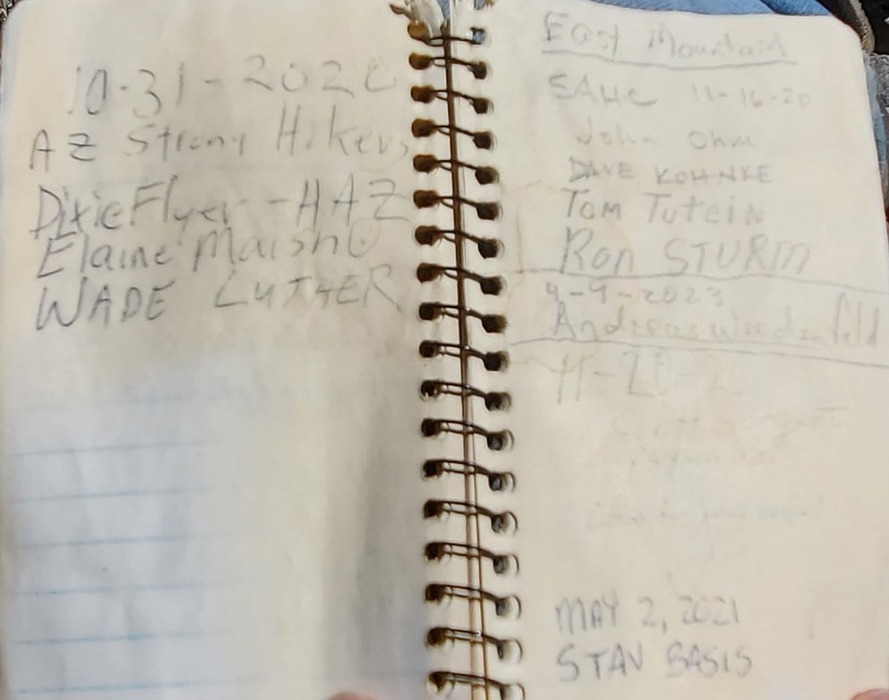 10-31-2020
AZ Strong Hikers
Dixie Flyer - HAZ
Elaine Maisho
WADE LUTHER
East Mountain
SAHC 11-16-20
John Ohm
DAVE KOHNKE
Tom Tutein
Ron STURM
4-9-2023
Andreas
11-20-
MAY 2, 2021
STAN BASIS